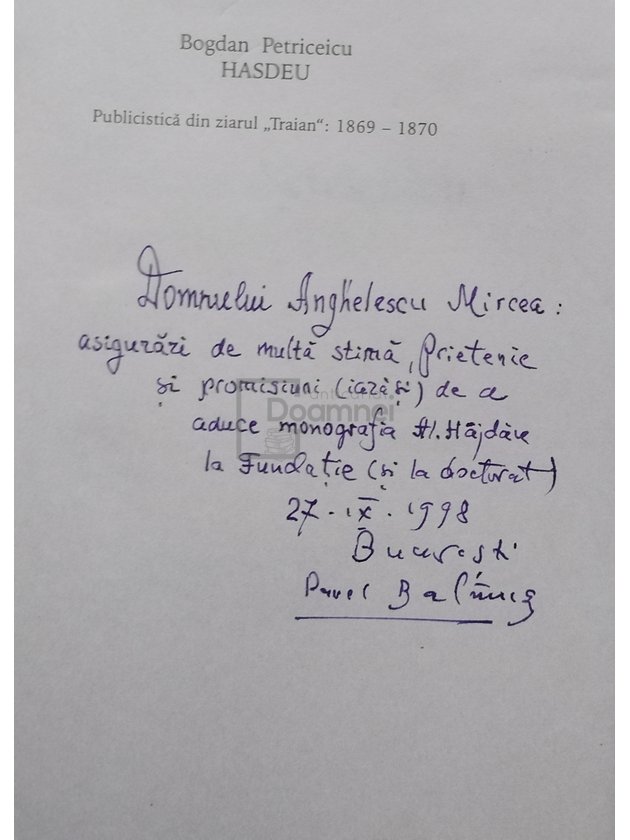 Bogdan Petriceicu
HASDEU
Publicistică din ziarul „Traian“: 1869 – 1870
Domnului Anghelescu Mircea :
asigurări de multă stimă, prietenie
și promisiuni (iarăși) de a
aduce monografia Al. Hâjdău
la Fundație (și la doctorat)
27 · IX · 1998
București
Pavel Balmuș
anticariat
Doamnei